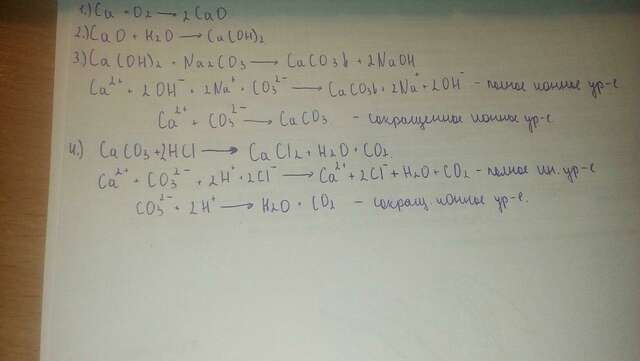 1.) Ca + O2 → 2CaO
2.) CaO + H2O → Ca(OH)2
3.) Ca(OH)2 + Na2CO3 → CaCO3↓ + 2NaOH
Ca²⁺ + 2OH⁻ + 2Na⁺ + CO3²⁻ → CaCO3↓ + 2Na⁺ + 2OH⁻ - полное ионное ур-е
Ca²⁺ + CO3²⁻ → CaCO3 - сокращенное ионное ур-е
4.) CaCO3 + 2HCl → CaCl2 + H2O + CO2.
Ca²⁺ + CO3²⁻ + 2H⁺ + 2Cl⁻ → Ca²⁺ + 2Cl⁻ + H2O + CO2 - полное ин. ур-е
CO3²⁻ + 2H⁺ → H2O + CO2 - сокращ. ионное ур-е.